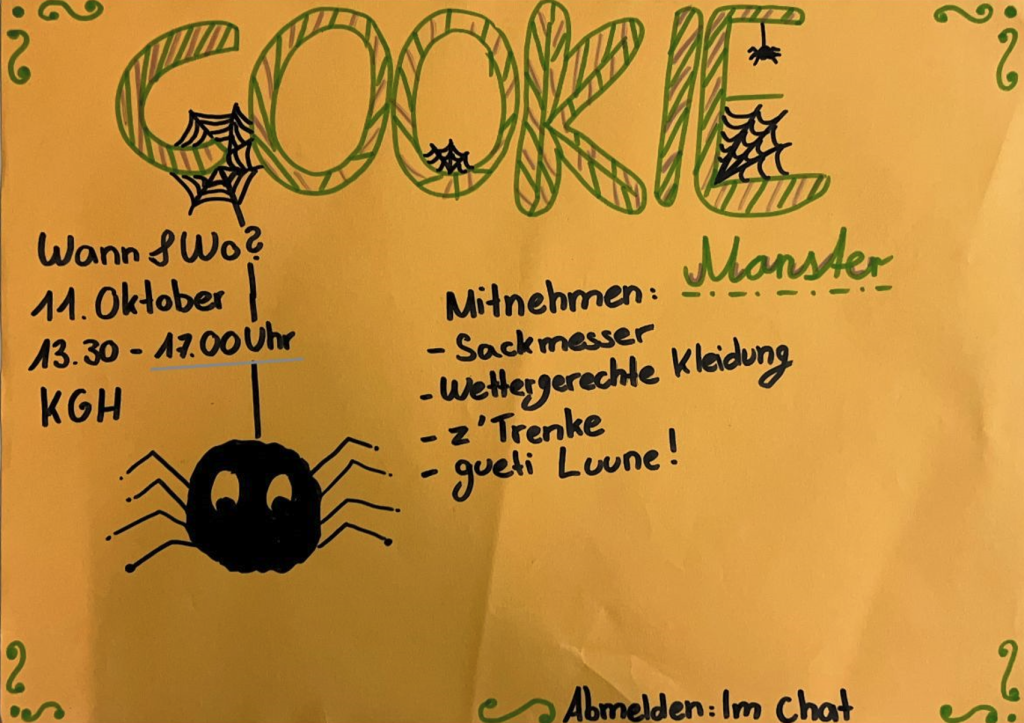 COOKIE
Manster
Wann & Wo?
11. Oktober
13.30 - 17.00 Uhr
KGH
Mitnehmen:
- Sackmesser
- Wettergerechte Kleidung
- z'Trenke
- gueti Luune!
Abmelden: Im Chat